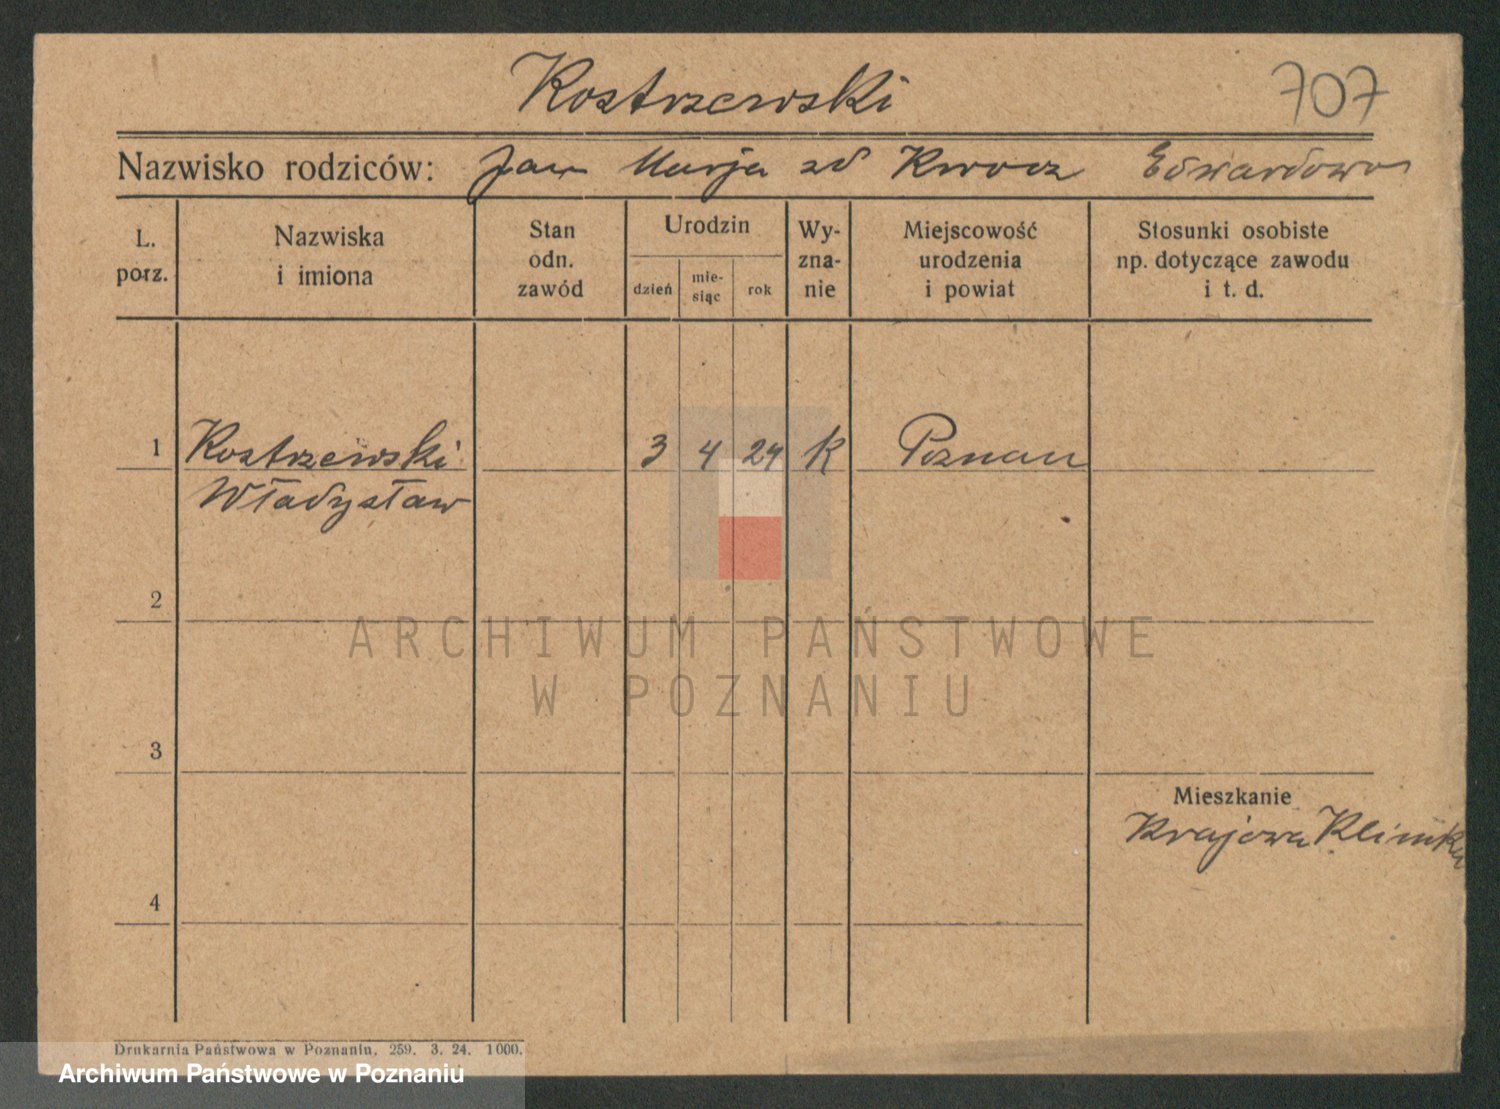 Kostrzewski 707
Nazwisko rodziców: Jan Marja zd Kwocz Edwardowo
L. porz.
Nazwiska i imiona
Stan odn. zawód
Urodzin
dzień
mie-siąc
rok
Wy-zna-nie
Miejscowość urodzenia i powiat
Stosunki osobiste np. dotyczące zawodu i t. d.
1 Kostrzewski 3 4 24 K Poznań
Władysław
2
ARCHIWUM PAŃSTWOWE
W POZNANIU
3
Mieszkanie
Krajowa Klinika
4
Drukarnia Państwowa w Poznaniu. 259. 3. 24. 1000.
Archiwum Państwowe w Poznaniu